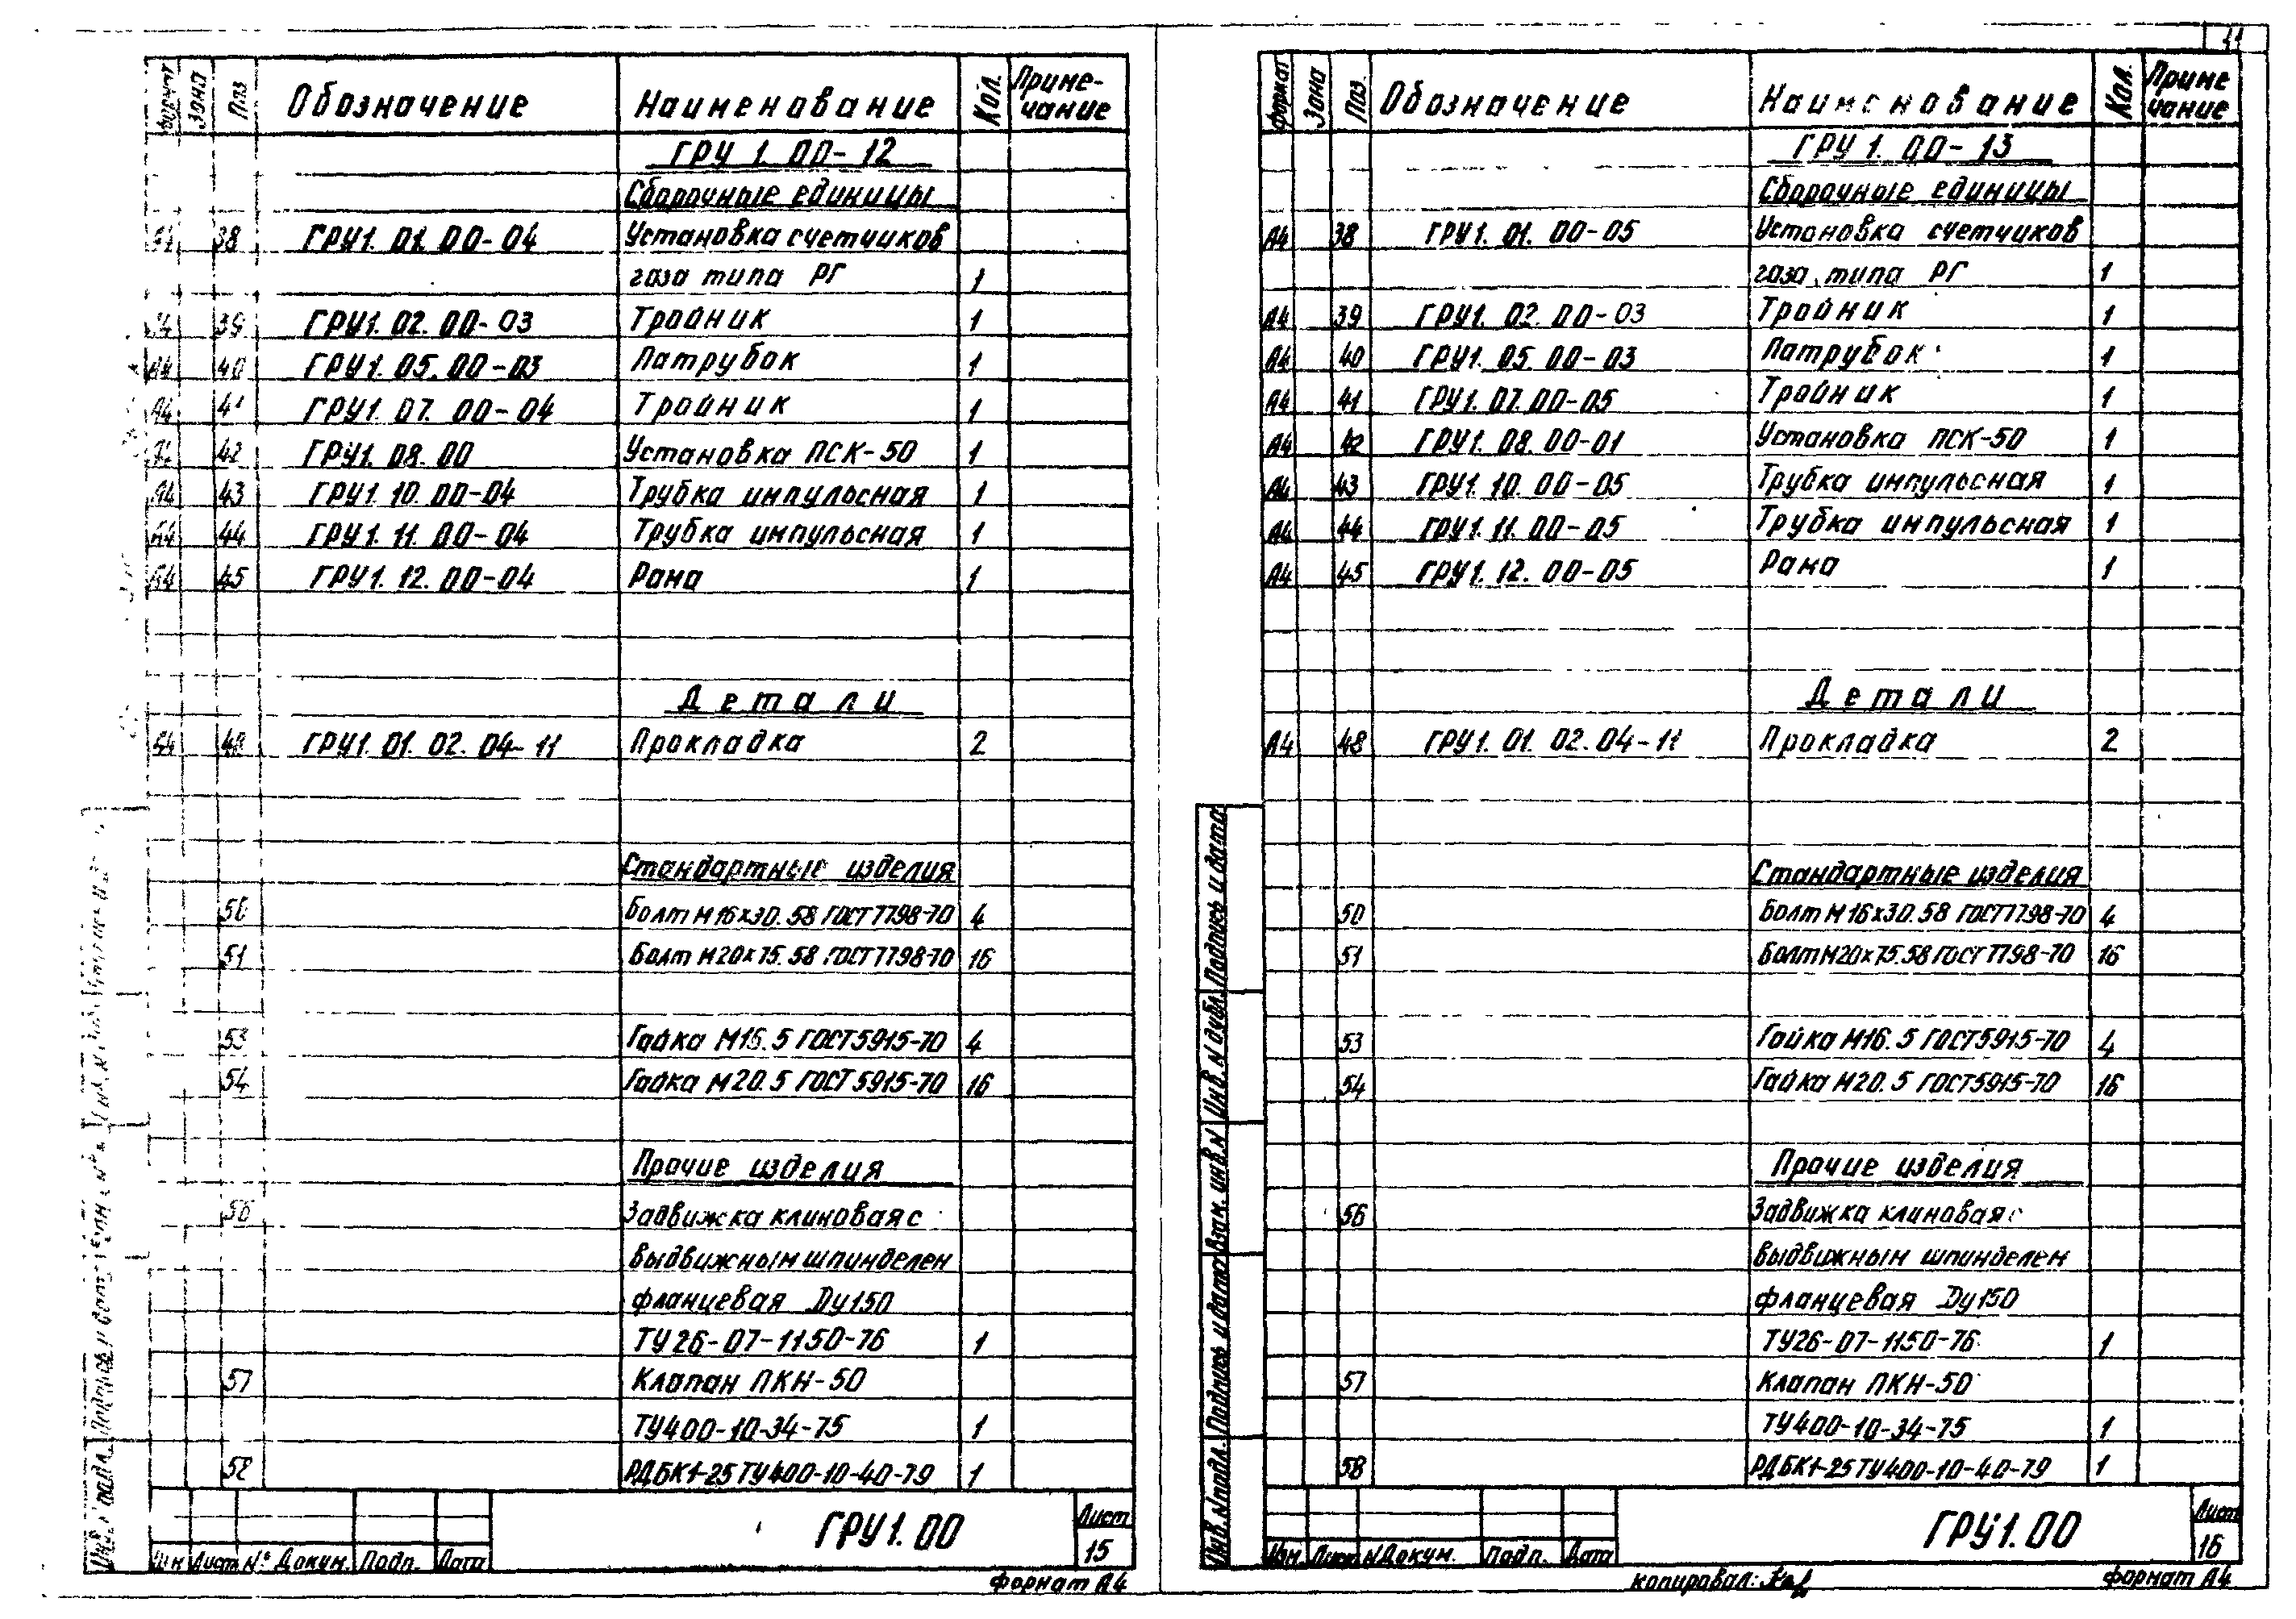 Формат Зона Поз Обозначение Наименование Кол. Приме-
чание
ГРУ 1. 00-12
Сборочные единицы
А4 38 ГРУ1. 01. 00-04 Установка счетчиков
газа типа РГ 1
А4 39 ГРУ1. 02. 00-03 Тройник 1
А4 40 ГРУ1. 05. 00-03 Патрубок 1
А4 41 ГРУ1. 07. 00-04 Тройник 1
А4 42 ГРУ1. 08. 00 Установка ПСК-50 1
А4 43 ГРУ1. 10. 00-04 Трубка импульсная 1
А4 44 ГРУ1. 11. 00-04 Трубка импульсная 1
А4 45 ГРУ1. 12. 00-04 Рама 1
Детали
А4 48 ГРУ1. 01. 02. 04-11 Прокладка 2
Стандартные изделия
50 Болт М16х30.58 ГОСТ7798-70 4
51 Болт М20х75.58 ГОСТ7798-70 16
53 Гайка М16.5 ГОСТ5915-70 4
54 Гайка М20.5 ГОСТ5915-70 16
Прочие изделия
56 Задвижка клиновая с
выдвижным шпинделем
фланцевая Ду150
ТУ26-07-1150-76 1
57 Клапан ПКН-50
ТУ400-10-34-75 1
58 РДБК1-25 ТУ400-10-40-79 1
ГРУ1. 00
Лист
15
Изм Лист № Докум. Подп. Дата
Формат А4
Формат Зона Поз. Обозначение Наименование Кол. Приме
чание
ГРУ 1. 00-13
Сборочные единицы
А4 38 ГРУ1. 01. 00-05 Установка счетчиков
газа типа РГ 1
А4 39 ГРУ1. 02. 00-03 Тройник 1
А4 40 ГРУ1. 05. 00-03 Патрубок 1
А4 41 ГРУ1. 07. 00-05 Тройник 1
А4 42 ГРУ1. 08. 00-01 Установка ПСК-50 1
А4 43 ГРУ1. 10. 00-05 Трубка импульсная 1
А4 44 ГРУ1. 11. 00-05 Трубка импульсная 1
А4 45 ГРУ1. 12. 00-05 Рама 1
Детали
А4 48 ГРУ1. 01. 02. 04-11 Прокладка 2
Стандартные изделия
50 Болт М16х30.58 ГОСТ7798-70 4
51 Болт М20х75.58 ГОСТ7798-70 16
53 Гайка М16.5 ГОСТ5915-70 4
54 Гайка М20.5 ГОСТ5915-70 16
Прочие изделия
56 Задвижка клиновая с
выдвижным шпинделем
фланцевая Ду150
ТУ26-07-1150-76 1
57 Клапан ПКН-50
ТУ400-10-34-75 1
58 РДБК1-25 ТУ400-10-40-79 1
Инв. N подл. Подпись и дата Взам. инв. N Инв. N дубл. Подпись и дата
ГРУ1. 00
Лист
16
Изм. Лист N Докум. Подп. Дата
Копировал:
Формат А4